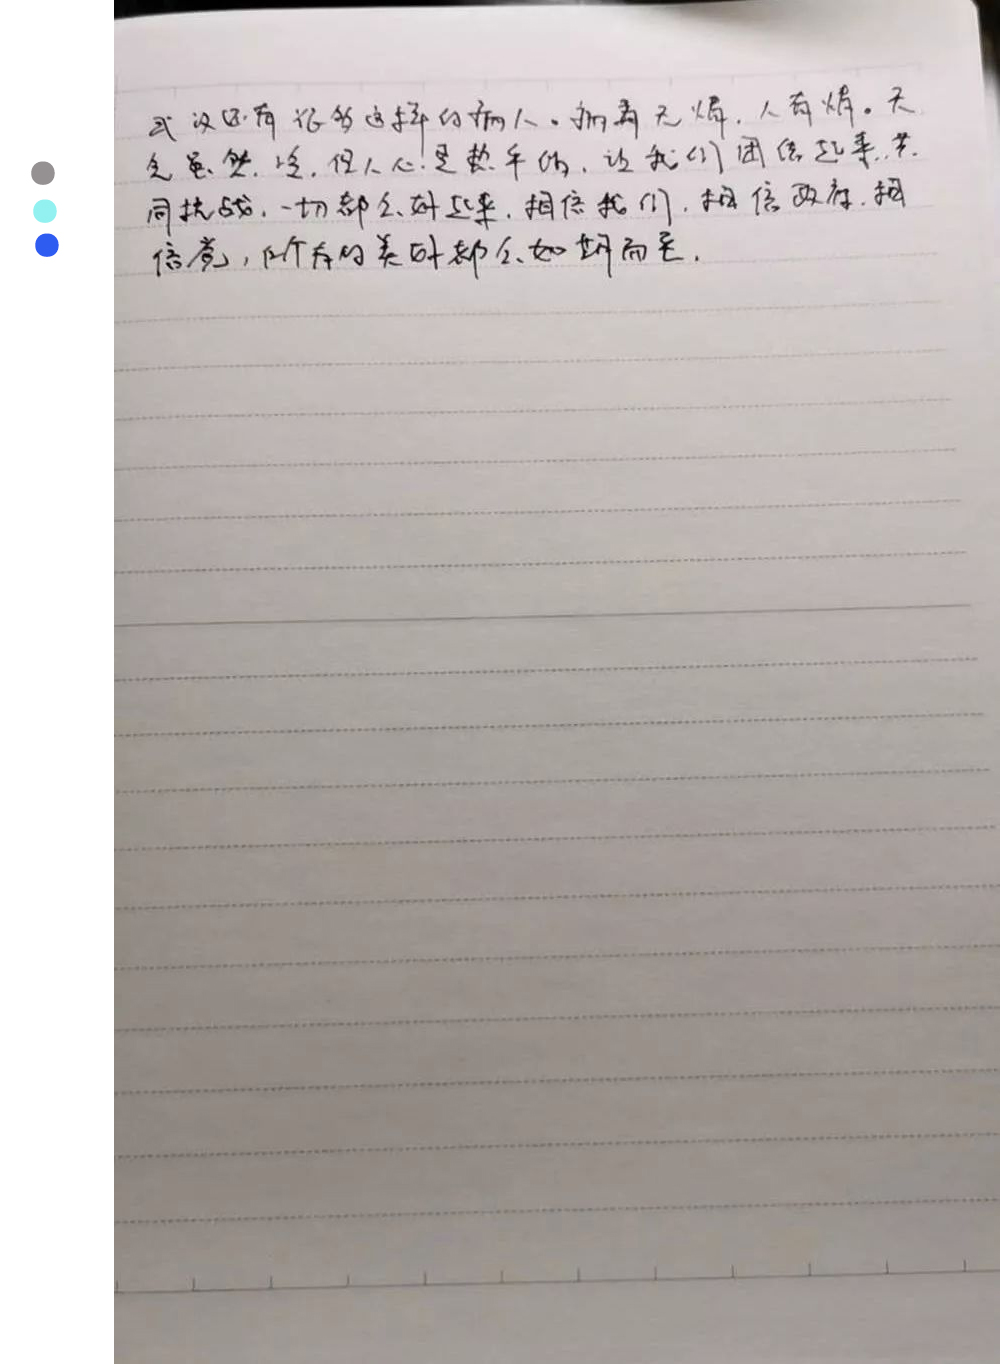 武汉还有很多这样的病人。病毒无情，人有情。天
气虽然冷，但人心是热乎的，让我们团结起来，共
同抗战，一切都会好起来，相信我们，相信政府，相
信党，所有的美好都会如期而至.